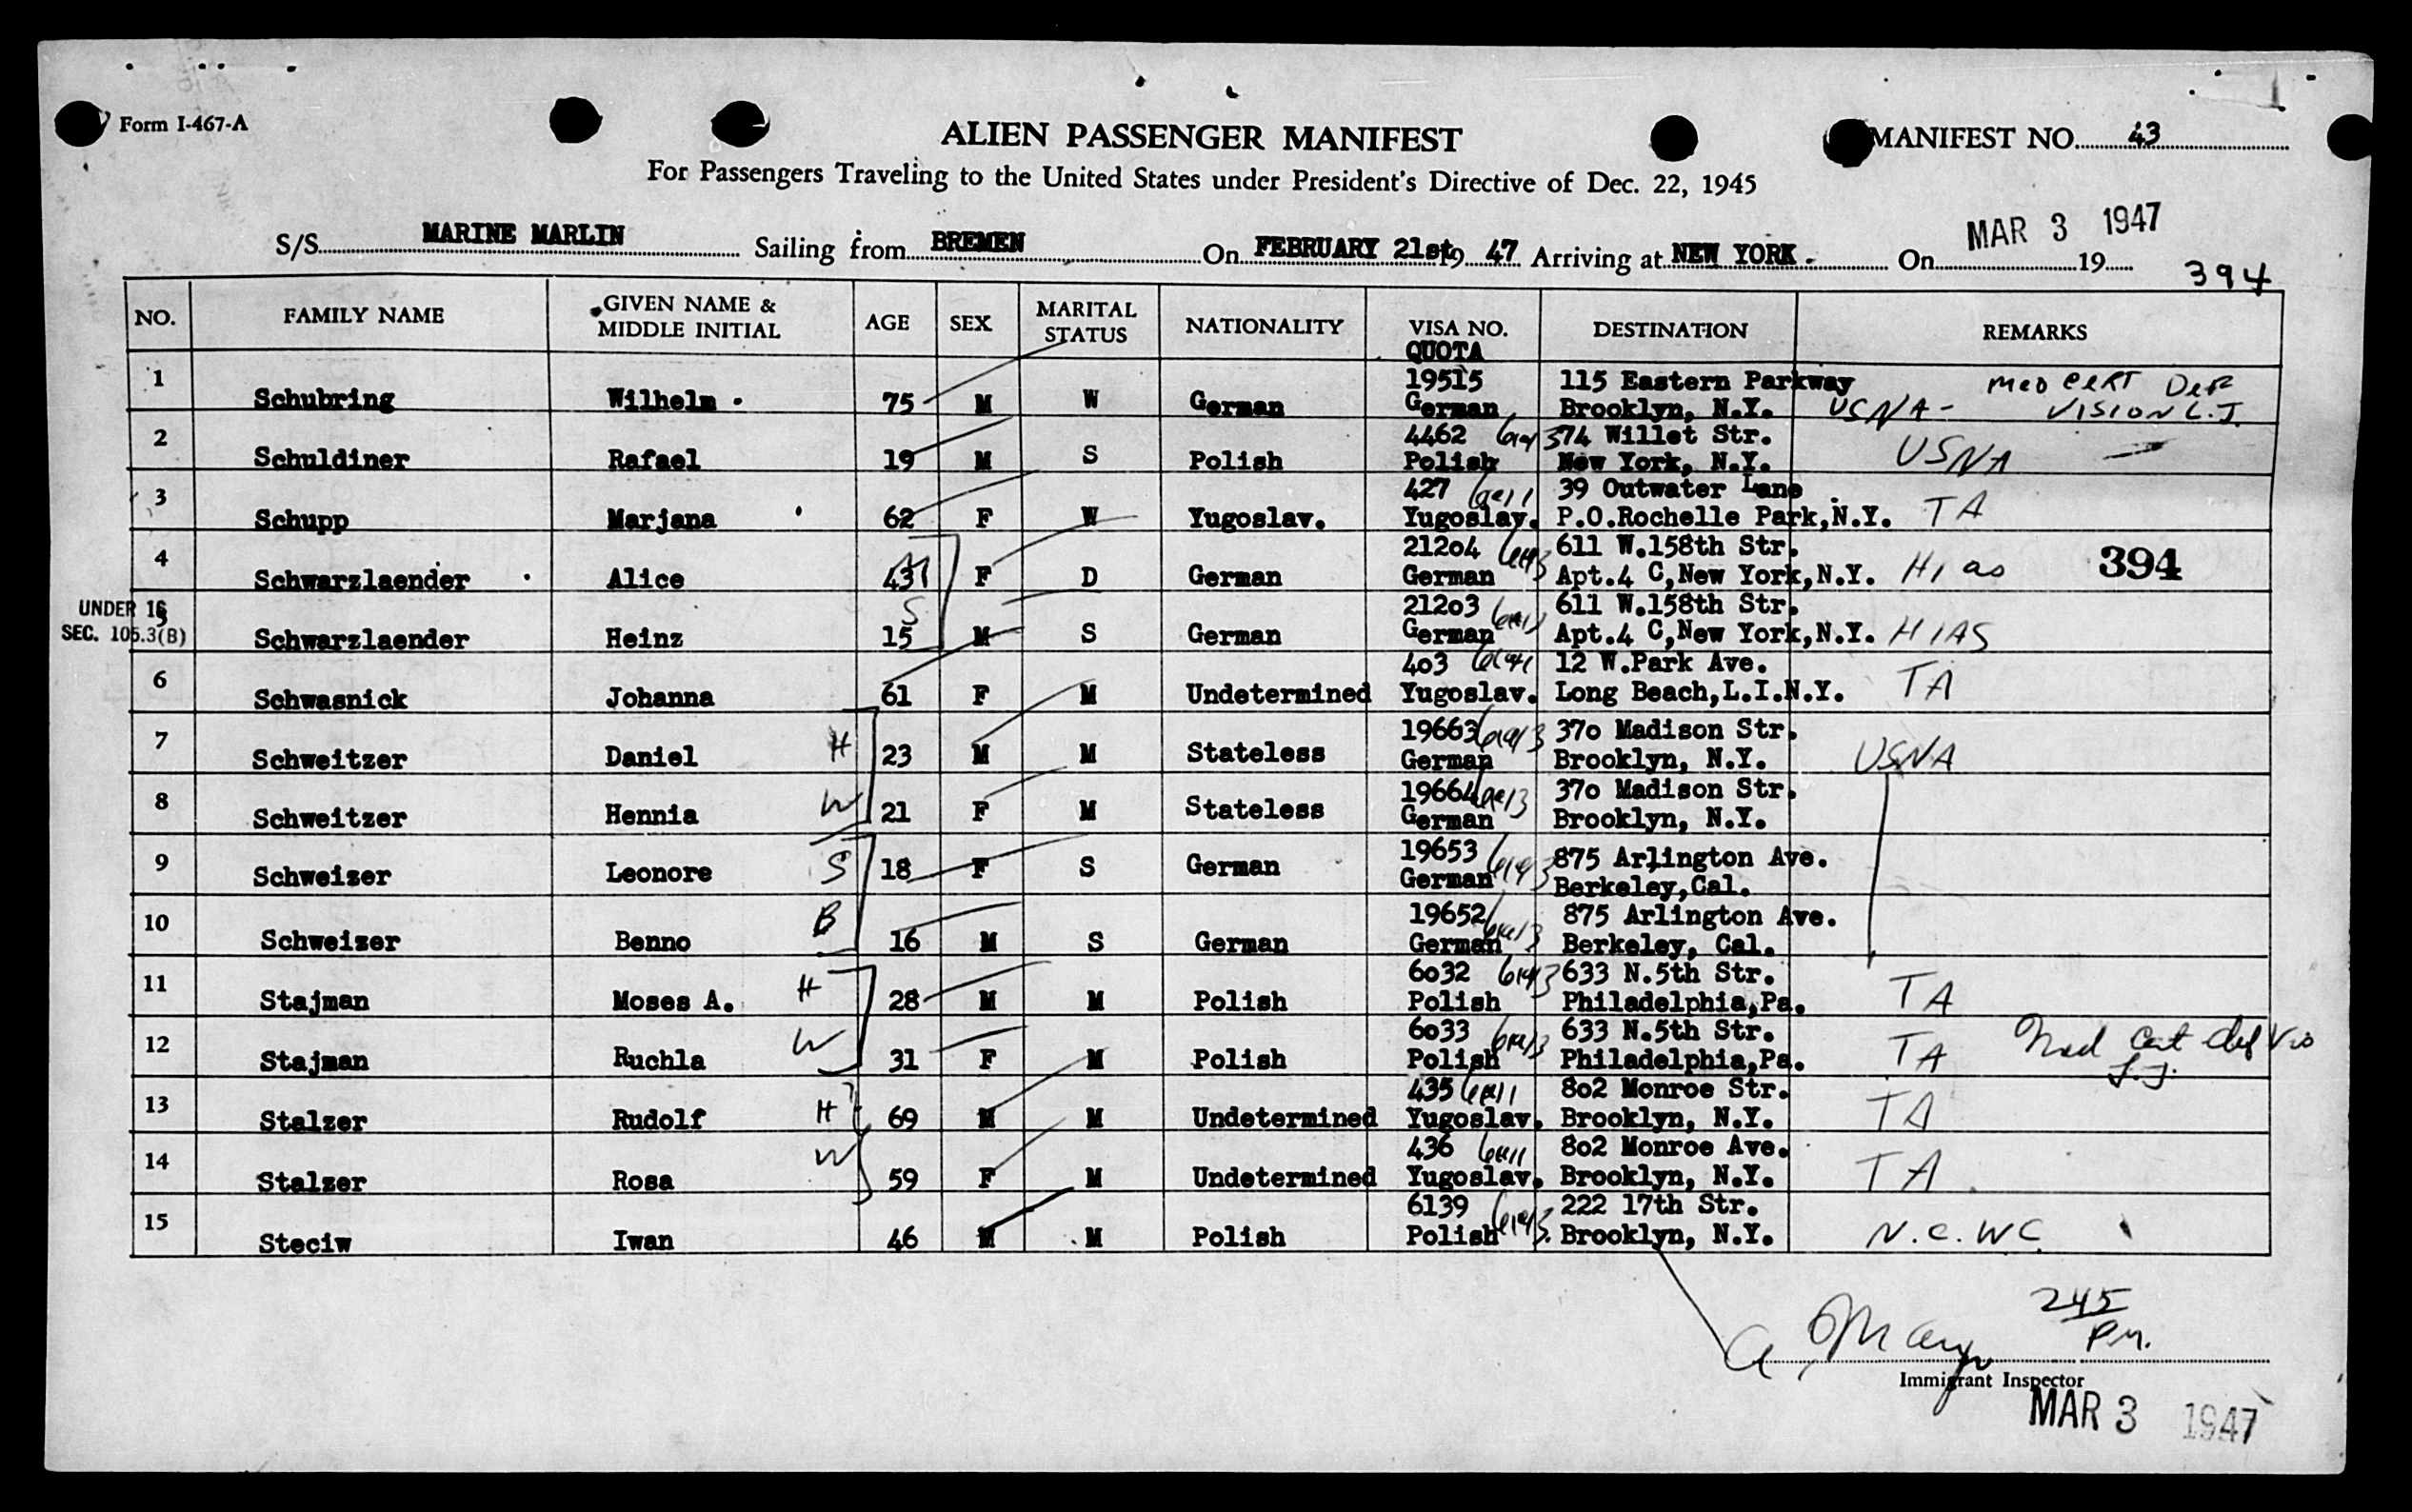 Form I-467-A
ALIEN PASSENGER MANIFEST
MANIFEST NO. 43
For Passengers Traveling to the United States under President's Directive of Dec. 22, 1945
MAR 3 1947
S/S MARINE MARLIN Sailing from BREMEN On FEBRUARY 21st 19 47 Arriving at NEW YORK. On 19
394
NO. FAMILY NAME GIVEN NAME & MIDDLE INITIAL AGE SEX MARITAL STATUS NATIONALITY VISA NO. QUOTA DESTINATION REMARKS
1 Schubring Wilhelm 75 M W German 19515 German 115 Eastern Parkway Brooklyn, N.Y. USNA - MED CERT DEF VISION L.J.
2 Schuldiner Rafael 19 M S Polish 4462 Polish 74 Willet Str. New York, N.Y. USNA
3 Schupp Marjana 62 F W Yugoslav. 427 Yugoslav. 39 Outwater Lane P.O.Rochelle Park,N.Y. TA
4 Schwarzlaender Alice 43 F D German 21204 German 611 W.158th Str. Apt.4 C,New York,N.Y. Hias 394
UNDER 16
SEC. 105.3(B)
5 Schwarzlaender Heinz S 15 M S German 21203 German 611 W.158th Str. Apt.4 C,New York,N.Y. HIAS
6 Schwasnick Johanna 61 F M Undetermined 403 Yugoslav. 12 W.Park Ave. Long Beach,L.I.N.Y. TA
7 Schweitzer Daniel H 23 M M Stateless 19663 German 370 Madison Str. Brooklyn, N.Y. USNA
8 Schweitzer Hennia W 21 F M Stateless 19664 German 370 Madison Str. Brooklyn, N.Y.
9 Schweizer Leonore S 18 F S German 19653 German 875 Arlington Ave. Berkeley,Cal.
10 Schweizer Benno B 16 M S German 19652 German 875 Arlington Ave. Berkeley, Cal.
11 Stajman Moses A. H 28 M M Polish 6032 Polish 633 N.5th Str. Philadelphia,Pa. TA
12 Stajman Ruchla W 31 F M Polish 6033 Polish 633 N.5th Str. Philadelphia,Pa. TA Med Cert def Vis L.J.
13 Stalzer Rudolf H 69 M M Undetermined 435 Yugoslav. 802 Monroe Str. Brooklyn, N.Y. TA
14 Stalzer Rosa W 59 F M Undetermined 436 Yugoslav. 802 Monroe Ave. Brooklyn, N.Y. TA
15 Steciw Iwan 46 M M Polish 6139 Polish 222 17th Str. Brooklyn, N.Y. N.C.WC
245
PM.
Immigrant Inspector
MAR 3 1947